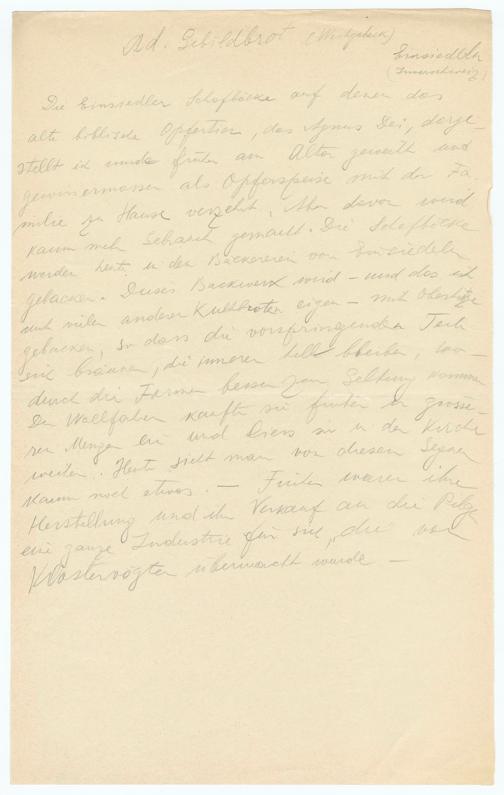 Ad. Gebildbrot
Einsiedeln
(Innerschweiz)
Die Einsiedler Schafböcke auf denen das
alte biblische Opfertier, das Agnus Dei, darge-
stellt ist wurde früher am Altar geweiht und
gewissermassen als Opferspeise mit der Fa-
milie zu Hause verzehrt. Aber davon wird
kaum mehr Gebrauch gemacht. Die Schafböcke
werden heute in den Bäckereien von Einsiedeln
gebacken. Dieses Backwerk wird – und das ist
auch vielen anderen Kultbroten eigen – mit Oberhitze
gebacken, so dass die vorspringenden Teile
sich bräunen, die inneren hell bleiben, wo-
durch die Formen besser zur Geltung kommen
Der Wallfahrer kaufte sie früher in grösse-
ren Mengen ein und liess sie in der Kirche
weihen. Heute sieht man von diesem Segnen
kaum noch etwas. – Früher waren ihre
Herstellung und ihr Verkauf an die Pilger
eine ganze Industrie für sich, die von
Klostervögten überwacht wurde –